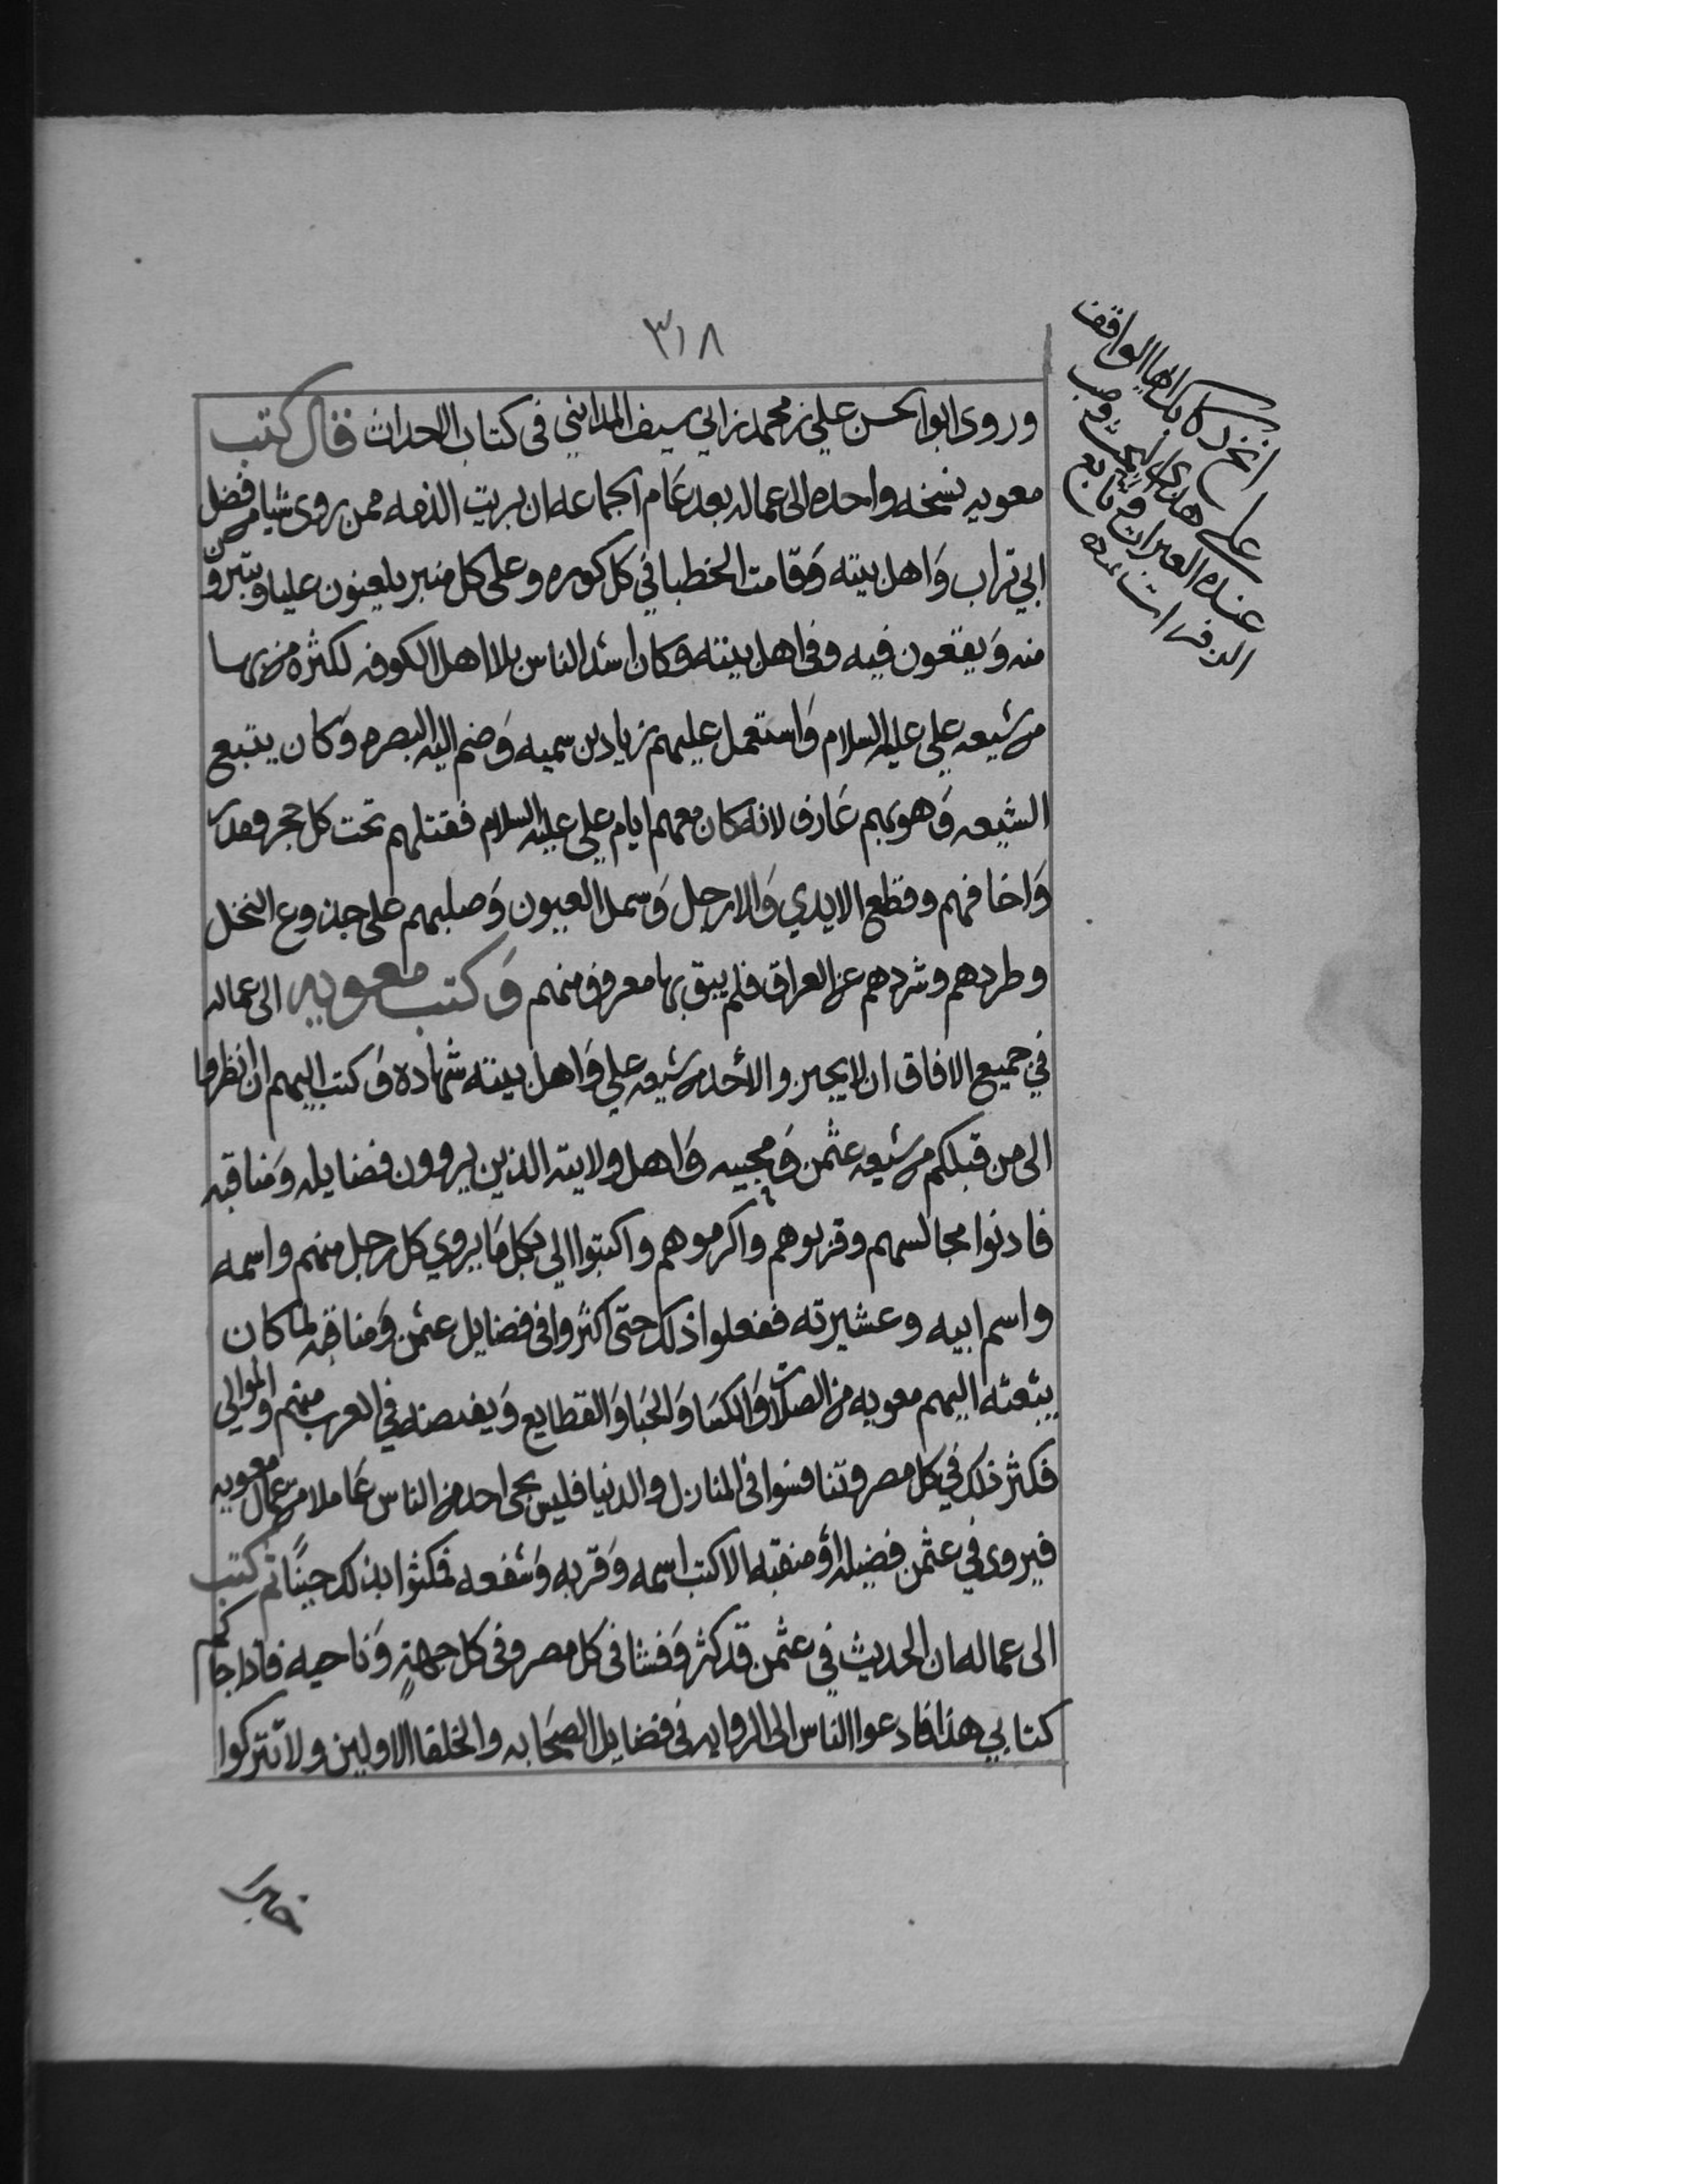 ٣١٨
وروى ابو الحسن علي بن محمد بن ابي سيف المدايني في كتاب الاحداث قال كتب
معويه نسخه واحده الى عماله بعد عام الجماعه ان بريت الذمه ممن روى شيا من فضل
ابي تراب وَاهل بيته وَقامت الخطبا في كل كوره وعلى كل منبر يلعنون عليا ويتبرون
منه وَيقعون فيه وفي اهل بيته وكان اشد الناس بلا اهل الكوفه لكثره من بها
من شيعه علي عليه السلام وَاستعمل عليهم زياد بن سميه وَضم اليه البصره وَكان يتبع
الشيعه وَهو بهم عَارف لانه كان معهم ايام علي عليه السلام فقتلهم تحت كل حجر ومدر
وَاخافهم وقطع الايدي وَالارجل وَسمل العيون وَصلبهم على جذوع النخل
وطردهم وشردهم عن العراق فلم يبق بها معروف منهم وَكتب معويه الى عماله
في جميع الافاق ان لا يجيزوا لأحد من شيعه علي وَاهل بيته شهاده وَكتب اليهم ان انظروا
الى من قبلكم من شيعه عثمن وَمحبيه وَاهل ولايته الذين يروون فضايله وَمناقبه
فادنوا مجالسهم وقربوهم واكرموهم واكتبوا الي بكل مَا يروي كل رجل منهم واسمه
واسم ابيه وعشيرته ففعلوا ذلك حتى اكثروا في فضايل عثمن وَمناقبه لما كان
يبعثه اليهم معويه من الصلات وَالكسَا وَالحبَا وَالقطايع وَيفيضه في العرب منهم والموالي
فكثر ذلك في كل مصر وتنافسوا في المنازل والدنيا فليس يجي احد من الناس عَاملا من عمال معويه
فيروى في عثمن فضيله اوْ منقبه الا كتب اسمه وَقربه وَشفعه فمكثوا بذلك حينًا ثم كتب
الى عماله ان الحديث في عثمن قد كثر وَفشا في كل مصر وفي كل جهةٍ وَناحيه فاذا جاكم
كتابي هذا فادعوا الناس الى الروايه في فضايل الصحَابه والخلفا الاولين ولا تتركوا
ايها الواقف
على
خبرا